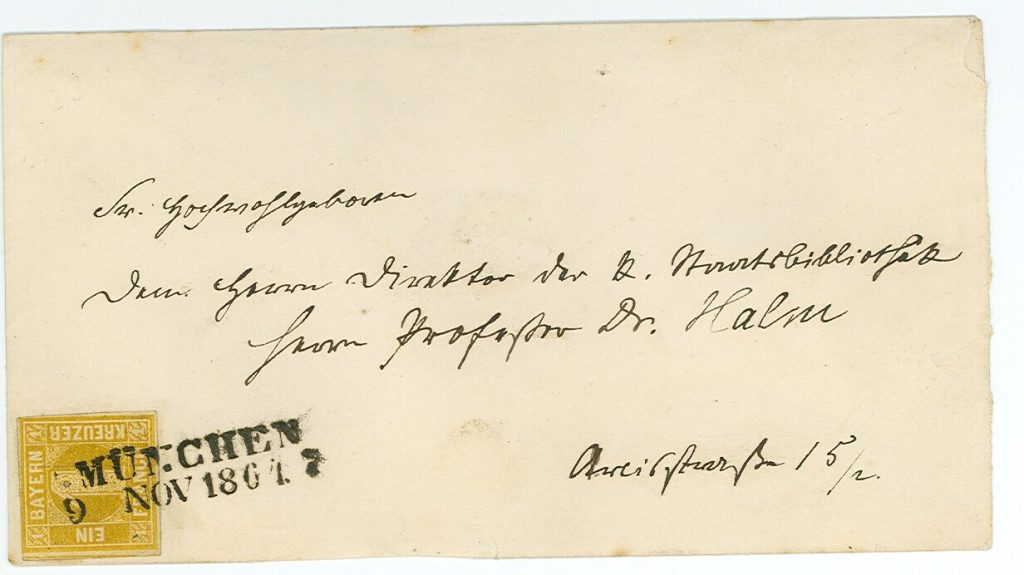 Sr. Hochwohlgeboren
Dem Herrn Direktor der k. Staatsbibliothek
Herrn Professor Dr. Halm
Arcisstraße 15/2.
MÜNCHEN
9 NOV 186 7
BAYERN
KREUZER
EIN